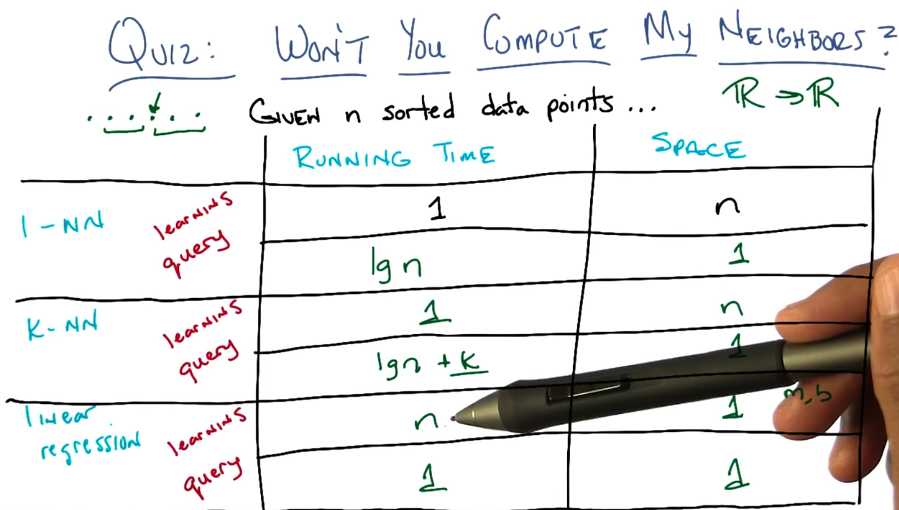 QUIZ: WON'T YOU COMPUTE MY NEIGHBORS?
GIVEN n sorted data points... ℝ → ℝ
RUNNING TIME SPACE
1-NN learning 1 n
query lg n 1
K-NN learning 1 n
query lg n + k 1
linear regression learning n 1 m, b
query 1 1